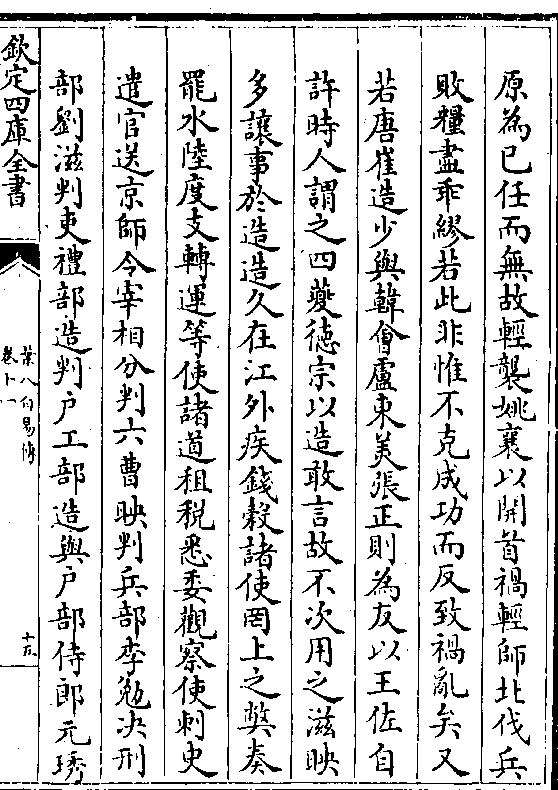 原為己任而無故輕襲姚襄以開首禍輕師北伐兵
敗糧盡乖繆若此非惟不克成功而反致禍亂矣又
若唐崔造少與韓會盧東美張正則為友以王佐自
許時人謂之四夔徳宗以造敢言故不次用之滋映
多讓事於造造久在江外疾錢穀諸使罔上之弊奏
罷水陸度支轉運等使諸道租税悉委觀察使刺史
遣官送京師令宰相分判六曹映判兵部李勉決刑
部劉滋判吏禮部造判户工部造與户部侍郎元琇
欽定四庫全書
葉八白易傳
卷十一
十五